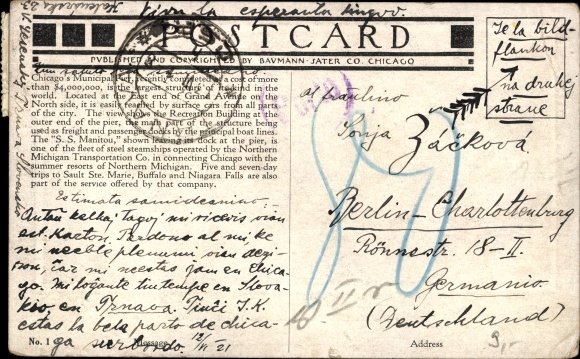 Vivu la esperanta lingvo.
POSTCARD
PUBLISHED AND COPYRIGHTED BY BAUMANN-JATER CO. CHICAGO
Chicago's Municipal Pier. Recently completed at a cost of more
than $4,000,000, is the largest structure of its kind in the
world. Located at the East end of Grand Avenue on the
North side, it is easily reached by surface cars from all parts
of the city. The view shows the Recreation Building at the
outer end of the pier, the main part of the structure being
used as freight and passenger docks by the principal boat lines.
The "S. S. Manitou," shown leaving its dock at the pier, is
one of the fleet of steel steamships operated by the Northern
Michigan Transportation Co. in connecting Chicago with the
summer resorts of Northern Michigan. Five and seven-day
trips to Sault Ste. Marie, Buffalo and Niagara Falls are also
part of the service offered by that company.
Estimata samideanino.
Antaŭ kelkaj tagoj mi ricevis vian
est. karton. Pardonu al mi, ke
mi neeble plenumi vian dezi-
ron, ĉar mi neestas jam en Chica-
go. Mi loĝante tiutempe en Slova-
kio en Trnava.
estas la bela parto de chica-
ga 12/II 21
No. 1
Message
Ie la bild-
flankon
na druhej
strane
al fraŭlino
Sonja Záčková
Berlin-Charlottenburg
Rönnestr. 18-II.
Germanio
(Deutschland)
Address